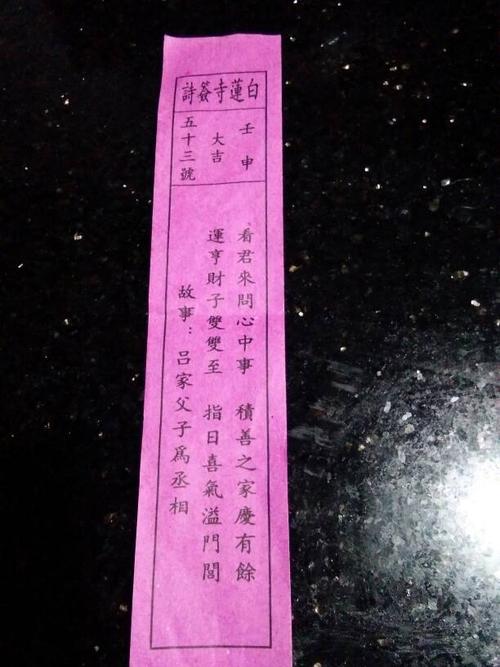 白蓮寺簽詩
壬申
大吉
五十三號
看君來問心中事 積善之家慶有餘
運亨財子雙雙至 指日喜氣溢門閭
故事：呂家父子為丞相